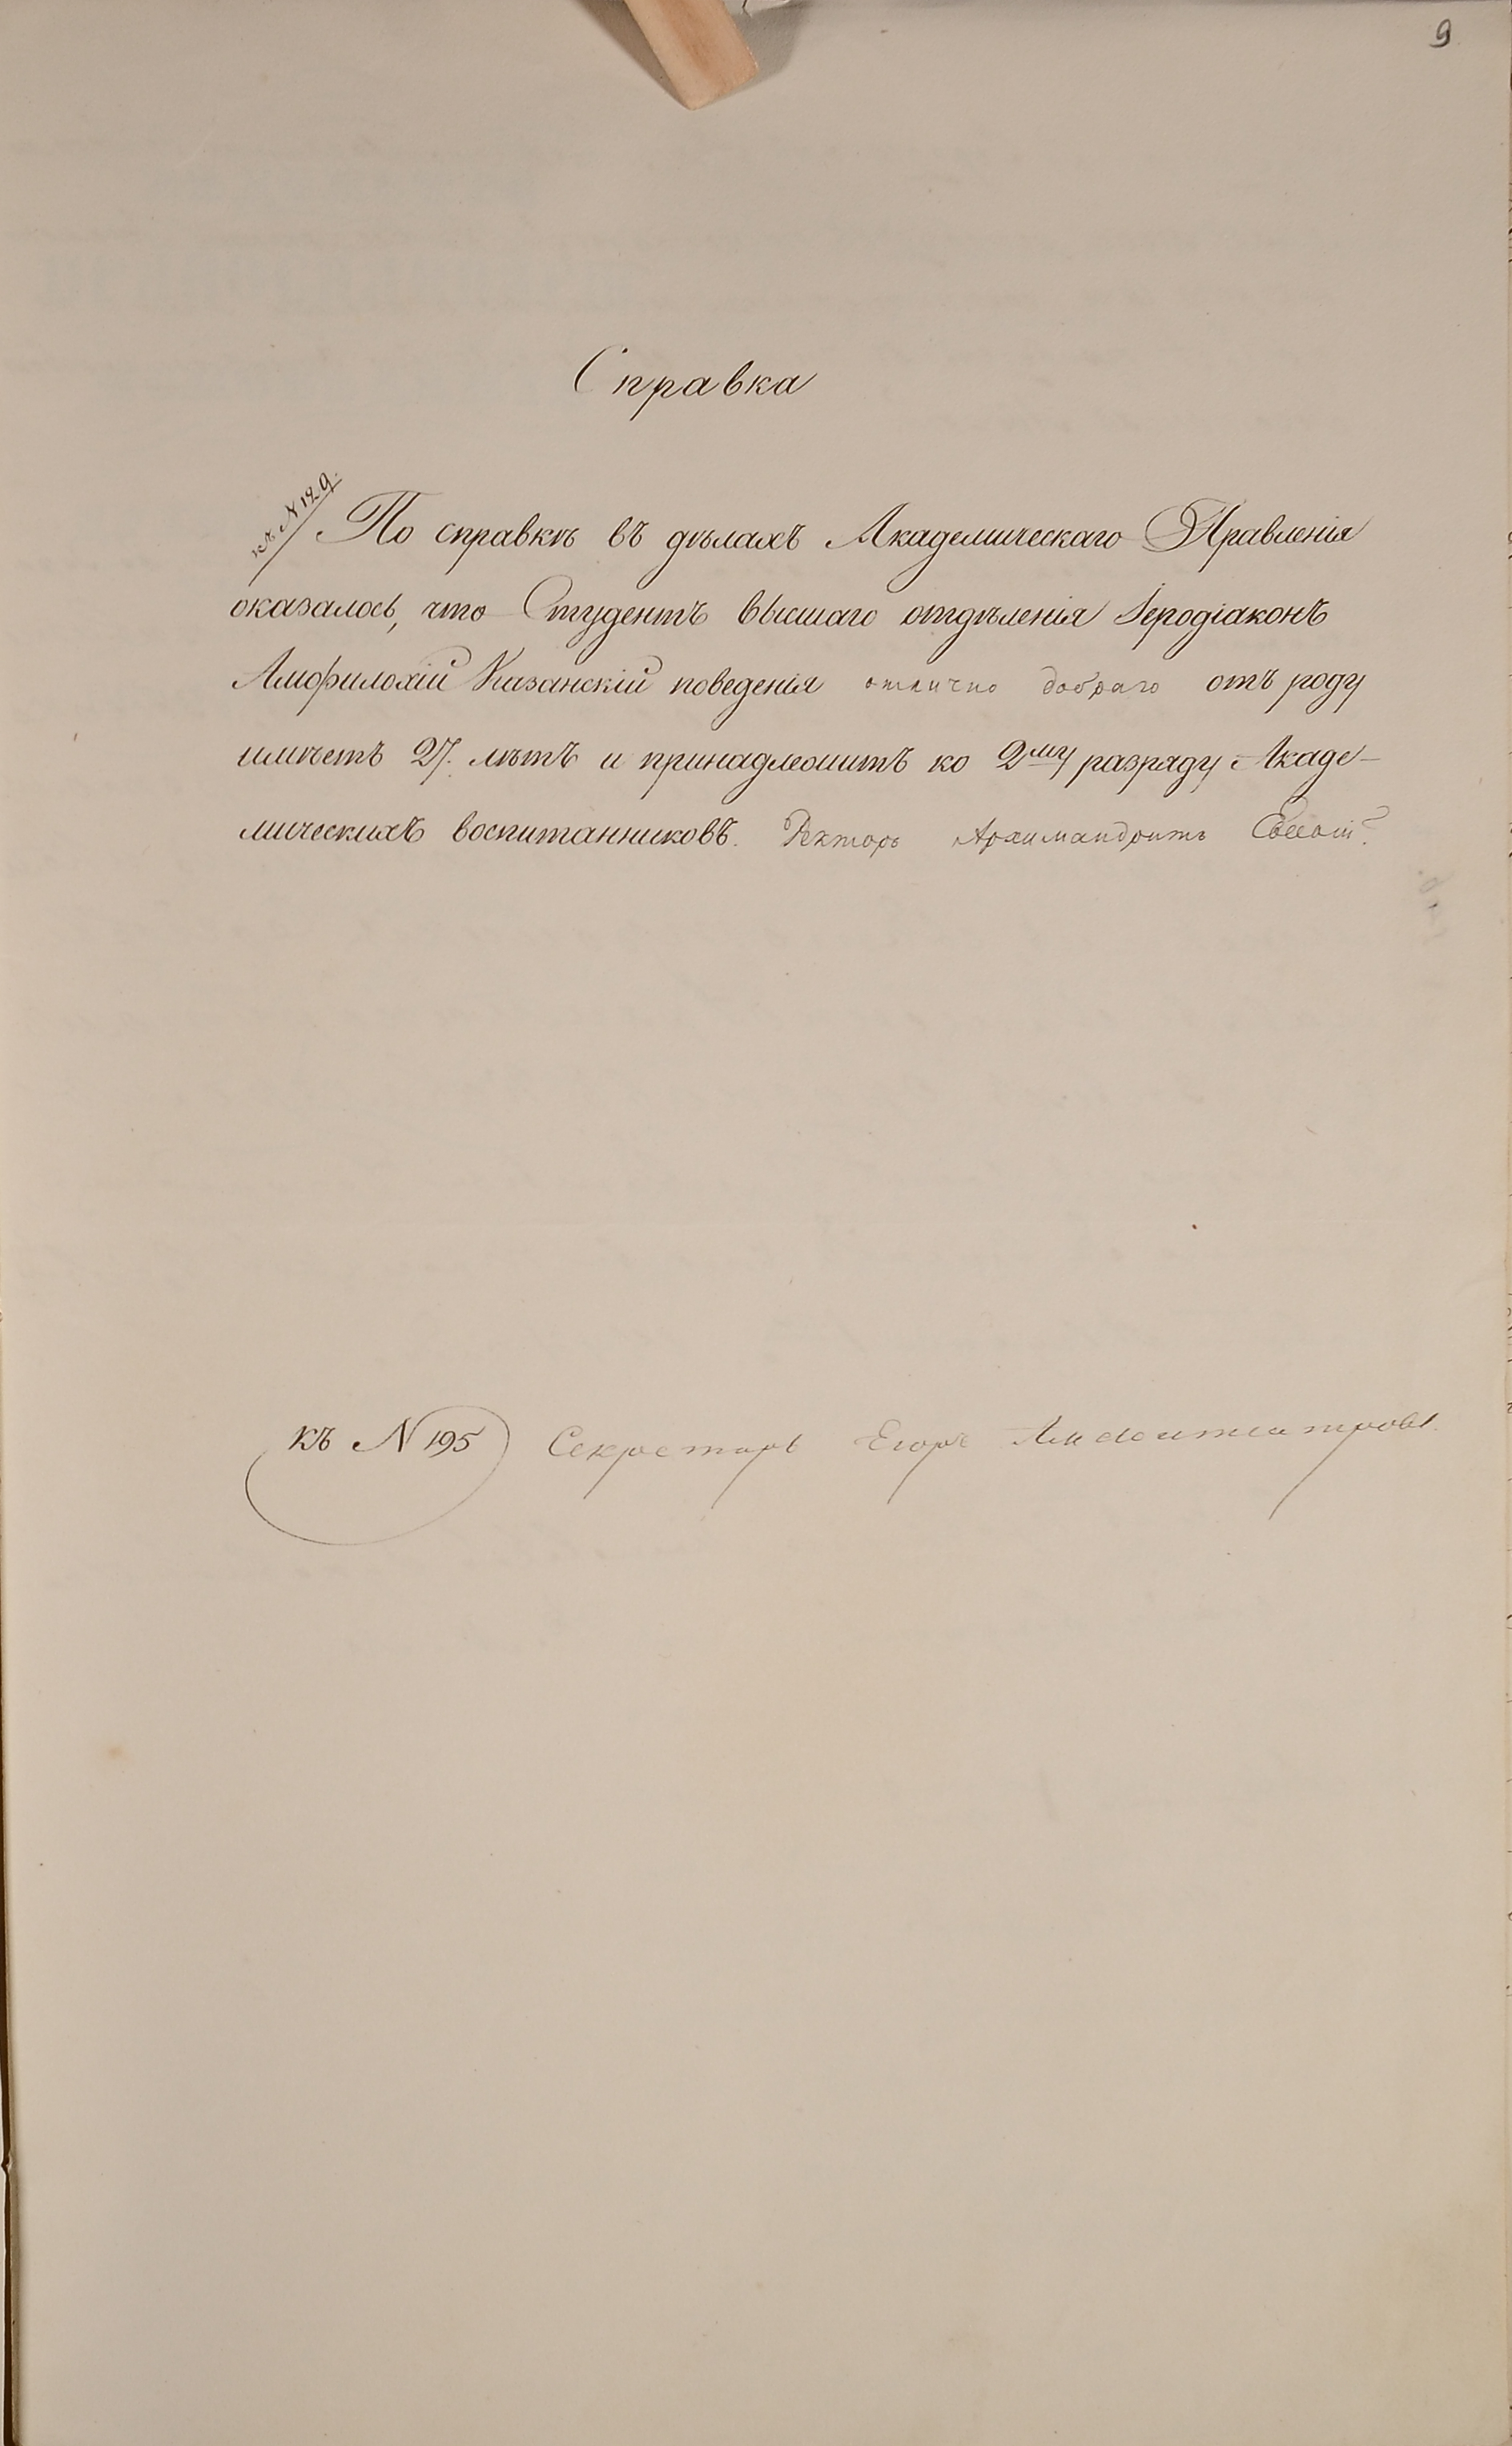 9
Справка
къ N 129.
По справкѣ въ дѣлахъ Академическаго Правленія
оказалось, что Студентъ высшаго отдѣленія Іеродіаконъ
Амфилохій Казанскій поведенія отлично добраго отъ роду
имѣетъ 27. лѣтъ и принадлежитъ ко 2му разряду Акаде-
мическихъ воспитанниковъ. Ректоръ Архимандритъ
къ N 195 Секретарь Егоръ Амфитеатровъ.